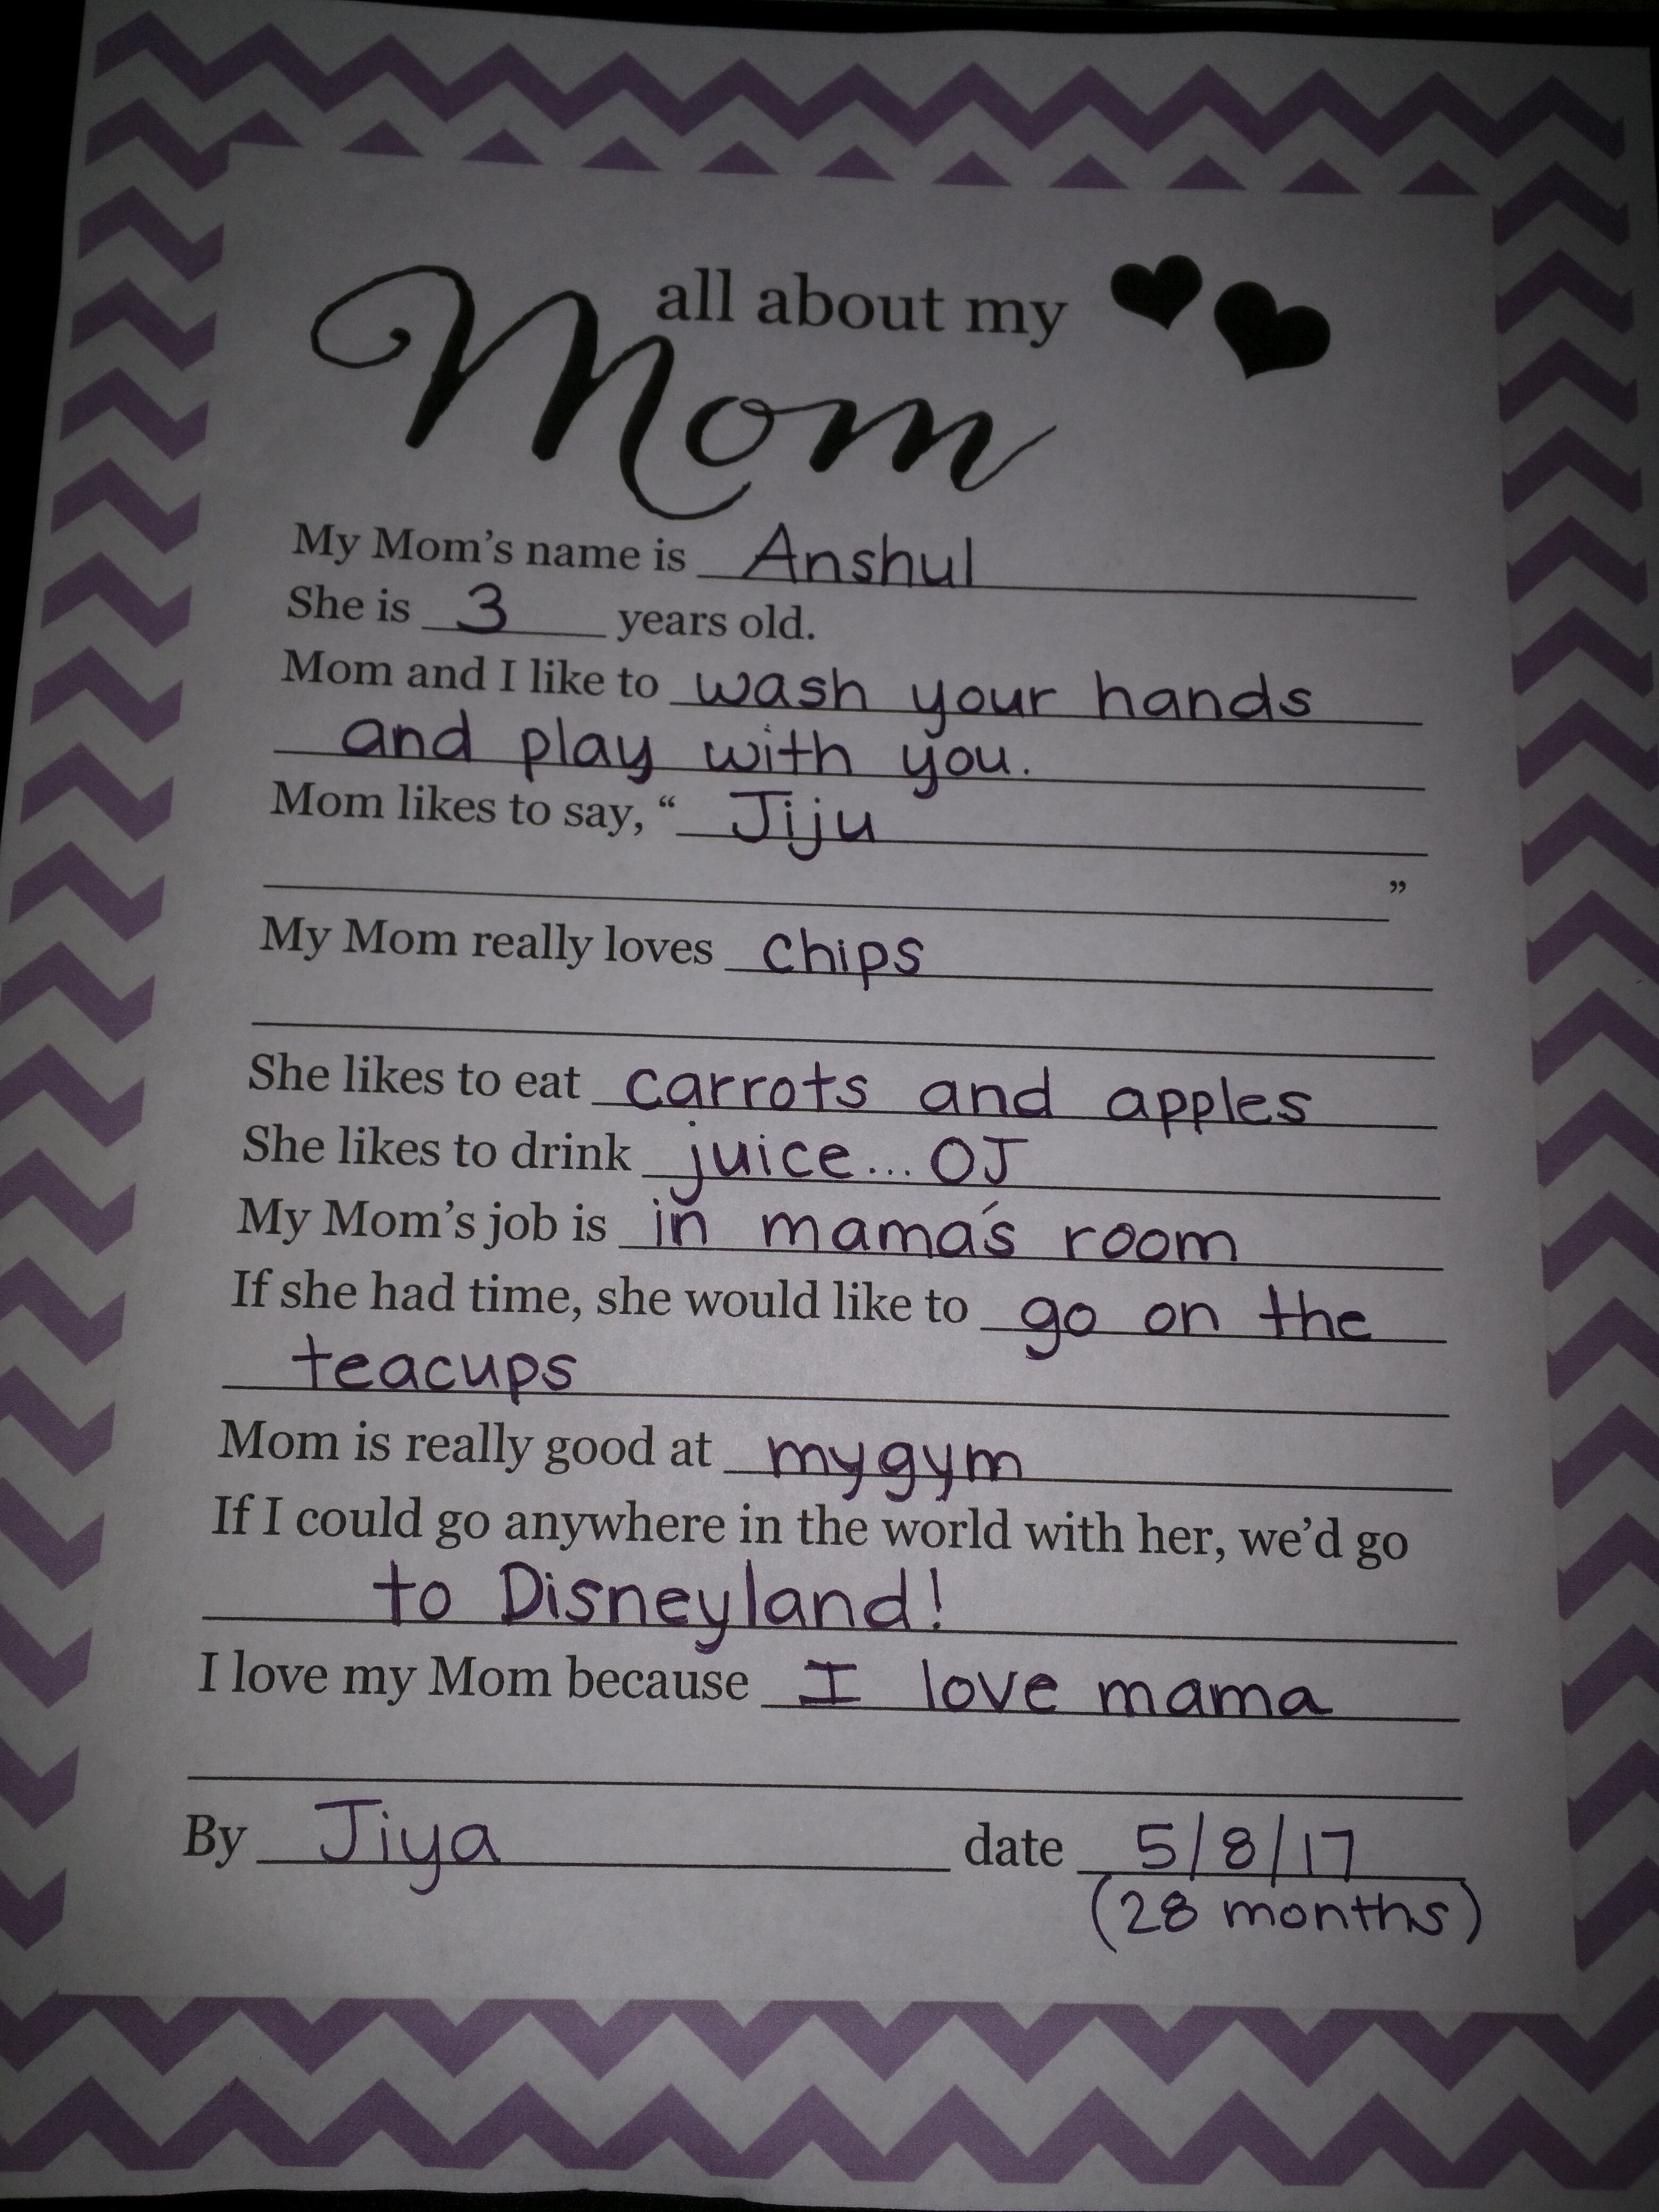 all about my
Mom
My Mom's name is Anshul
She is 3 years old.
Mom and I like to wash your hands
and play with you.
Mom likes to say, “ Jiju
”
My Mom really loves chips
She likes to eat carrots and apples
She likes to drink juice... OJ
My Mom's job is in mama's room
If she had time, she would like to go on the
teacups
Mom is really good at mygym
If I could go anywhere in the world with her, we'd go
to Disneyland!
I love my Mom because I love mama
By Jiya date 5/8/17
(28 months)